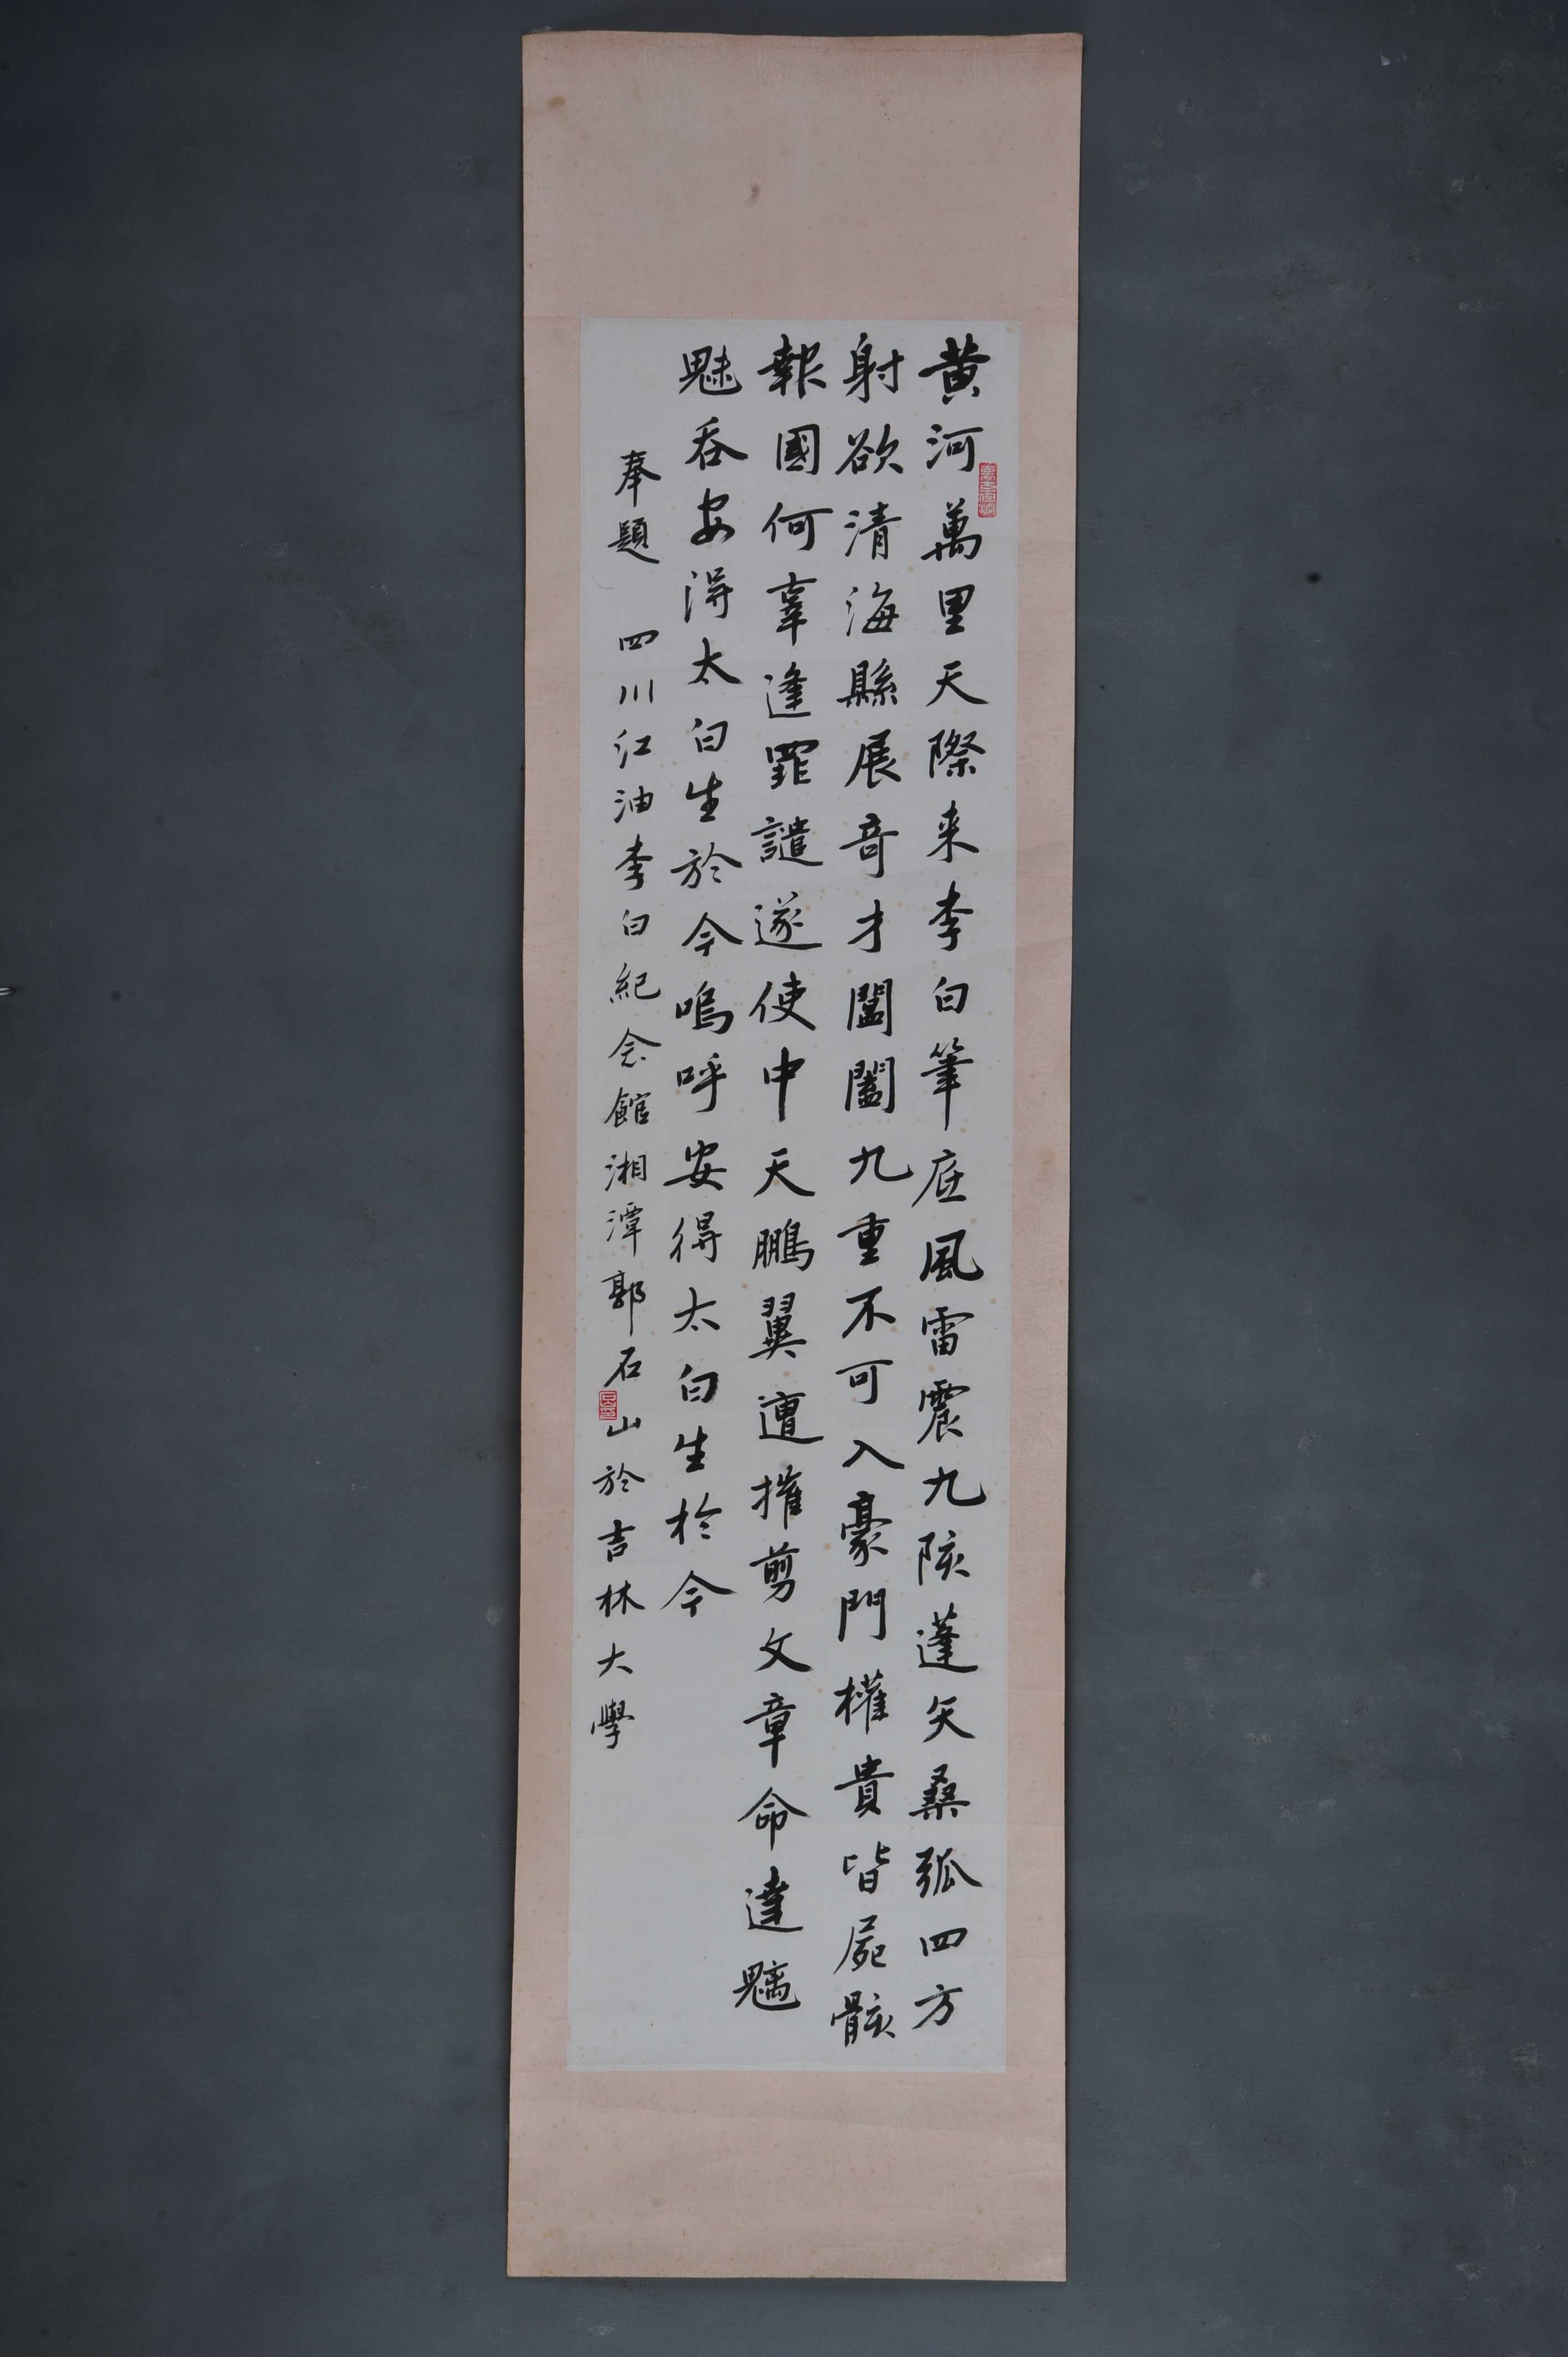 黄河萬里天際来李白筆底風雷震九陔蓬矢桑弧四方
射欲清海縣展奇才闔闔九重不可入豪門權貴皆屍骸
報國何辜逢罪譴遂使中天鵬翼遭摧剪文章命達魑
魅吞安得太白生於今嗚呼安得太白生於今
奉題 四川江油李白紀念館湘潭郭石山於吉林大學